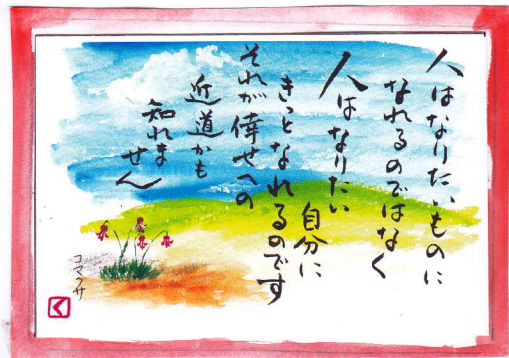 人はなりたいものに
なれるのではなく
人はなりたい
自分に
きっとなれるのです
それが倖せへの
近道かも
知れま
せん
コマクサ
く